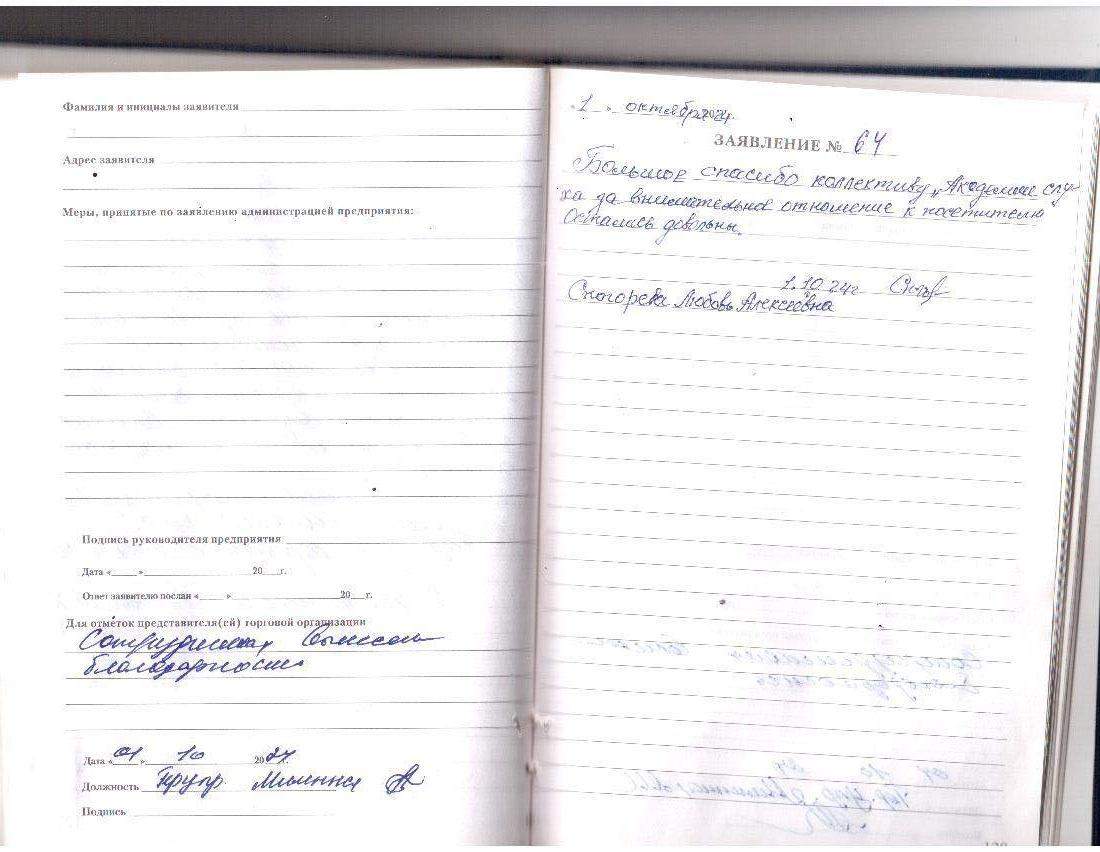 Фамилия и инициалы заявителя
Адрес заявителя
Меры, принятые по заявлению администрацией предприятия:
Подпись руководителя предприятия
Дата «     »                20     г.
Ответ заявителю послан «     »                20     г.
Для отметок представителя(ей) торговой организации
Сотрудникам вынесена
благодарность
Дата « 01 » 10 2024.
Должность
Подпись
« 1 » октября 2024г.
ЗАЯВЛЕНИЕ № 64
Большое спасибо коллективу „Академии слу-
ха за внимательное отношение к посетителю"
Остались довольны.
1.10.24г
Любовь Алексеевна